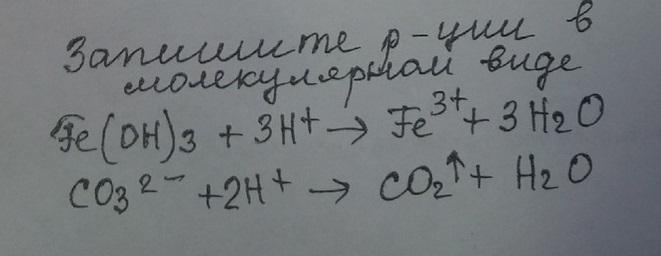 Запишите р-ции в
молекулярном виде
Fe(OH)3 + 3H⁺ → Fe³⁺ + 3H2O
CO3²⁻ + 2H⁺ → CO2↑ + H2O